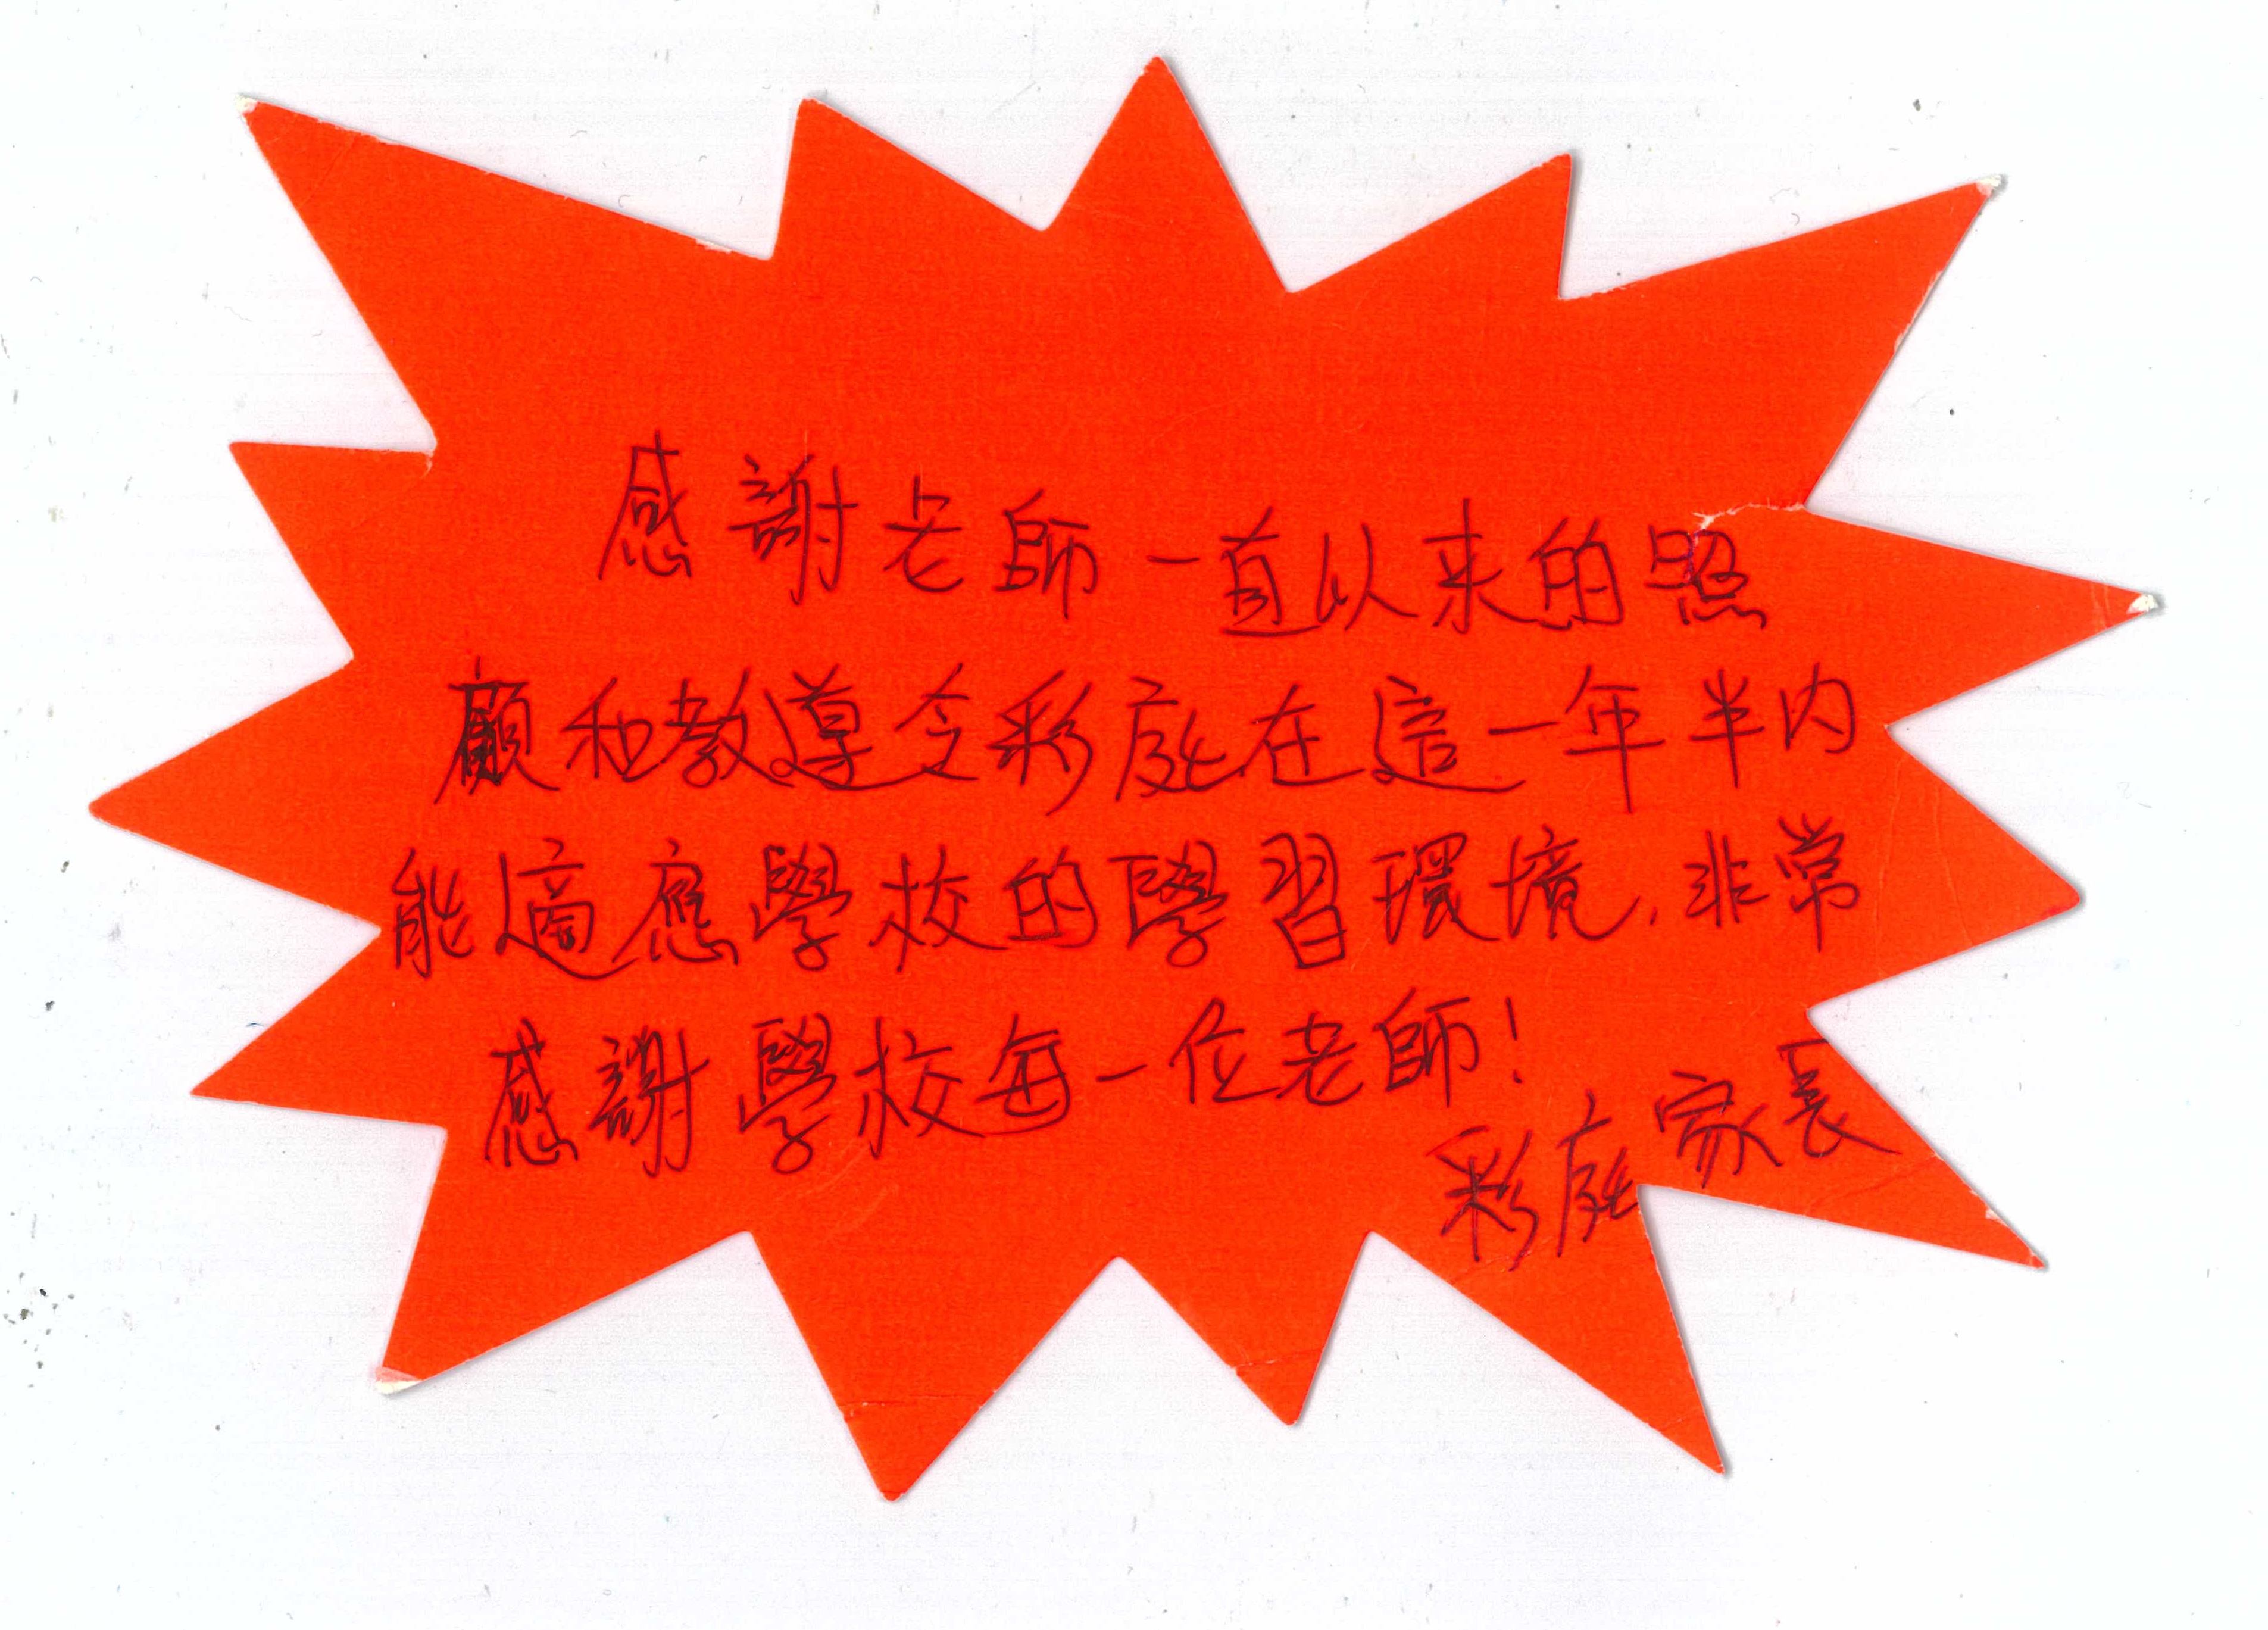 感謝老師一直以來的照
顧和教導令彩庭在這一年半內
能適應學校的學習環境，非常
感謝學校每一位老師！
彩庭家長